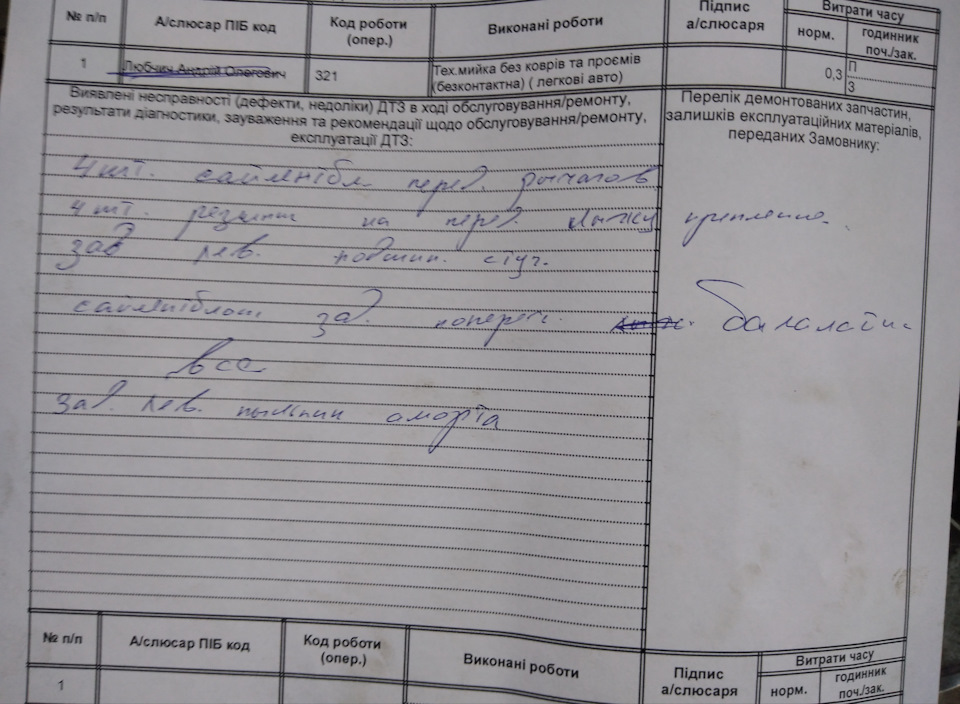 № п/п А/слюсар ПІБ код Код роботи (опер.) Виконані роботи Підпис а/слюсаря Витрати часу норм. годинник поч./зак.
1 Любчич Андрій Олегович 321 Тех.мийка без коврів та проємів (безконтактна) ( легкові авто) 0,3 П З
Виявлені несправності (дефекти, недоліки) ДТЗ в ході обслуговування/ремонту,
результати діагностики, зауваження та рекомендації щодо обслуговування/ремонту,
експлуатації ДТЗ:
Перелік демонтованих запчастин,
залишків експлуатаційних матеріалів,
переданих Замовнику:
4шт. сайлентбл. перед. рычагов
4шт. резинки на перед. лыжу крепление.
зад лев. подшип. стуч.
сайлентблоки зад попереч. балалайки
все
зад. лев. пыльник аморта
№ п/п А/слюсар ПІБ код Код роботи (опер.) Виконані роботи Підпис а/слюсаря Витрати часу норм. годинник поч./зак.
1